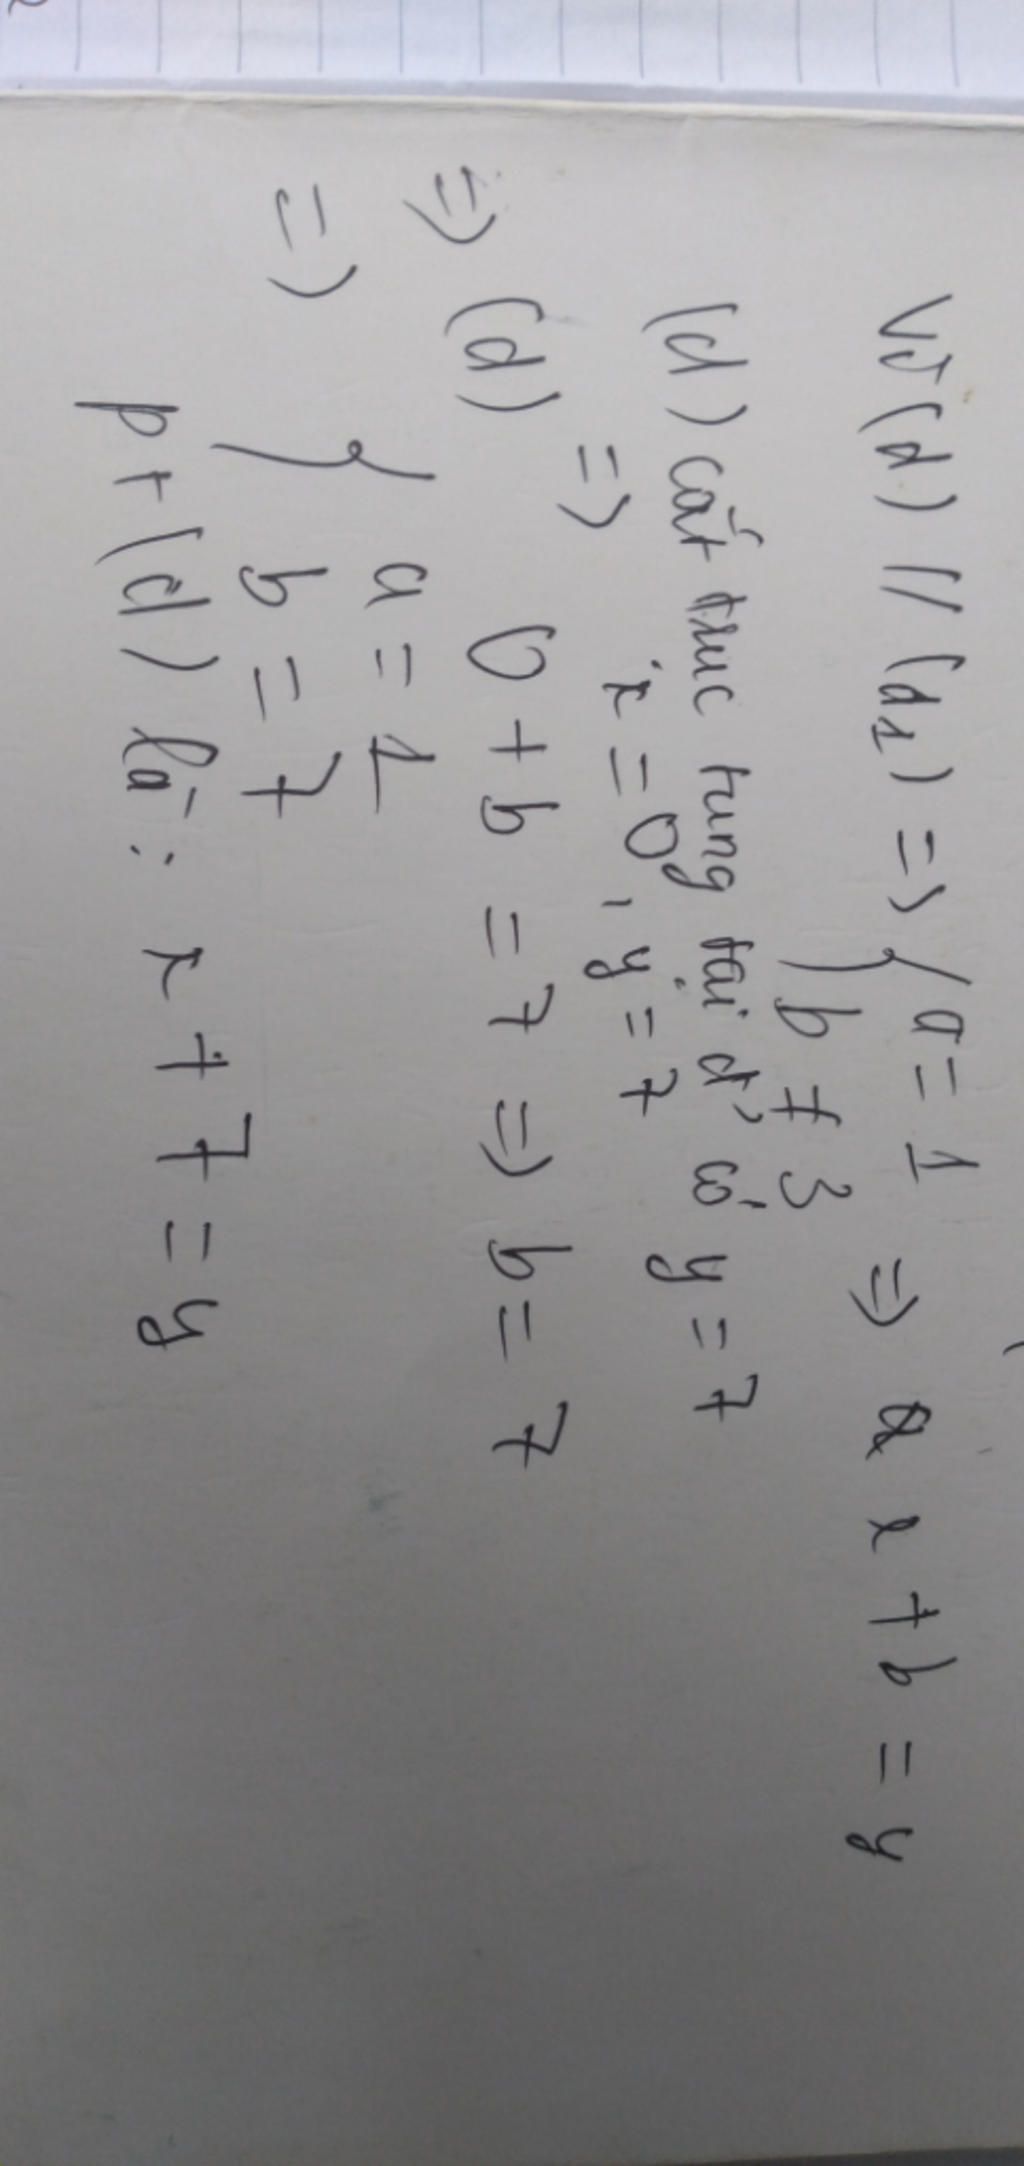 Vì (d) // (d1) => { a = 1 => x + b = y
b ≠ 3
(d) cắt trục tung tại đ' có y = 7
=> x = 0, y = 7
=> (d) 0 + b = 7 => b = 7
=> { a = 1
b = 7
pt (d) là: x + 7 = y